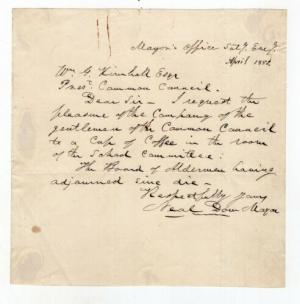 Mayor's Office Saty. Eveg.
April 1852
Wm. G. Kimball Esqr
Prest. Common Council.
Dear Sir – I request the
pleasure of the Company of the
gentlemen of the Common Council
to a Cup of Coffee in the room
of the School Committee:
The Board of Aldermen having
adjourned sine die –
Respectfully yours
Neal Dow Mayor